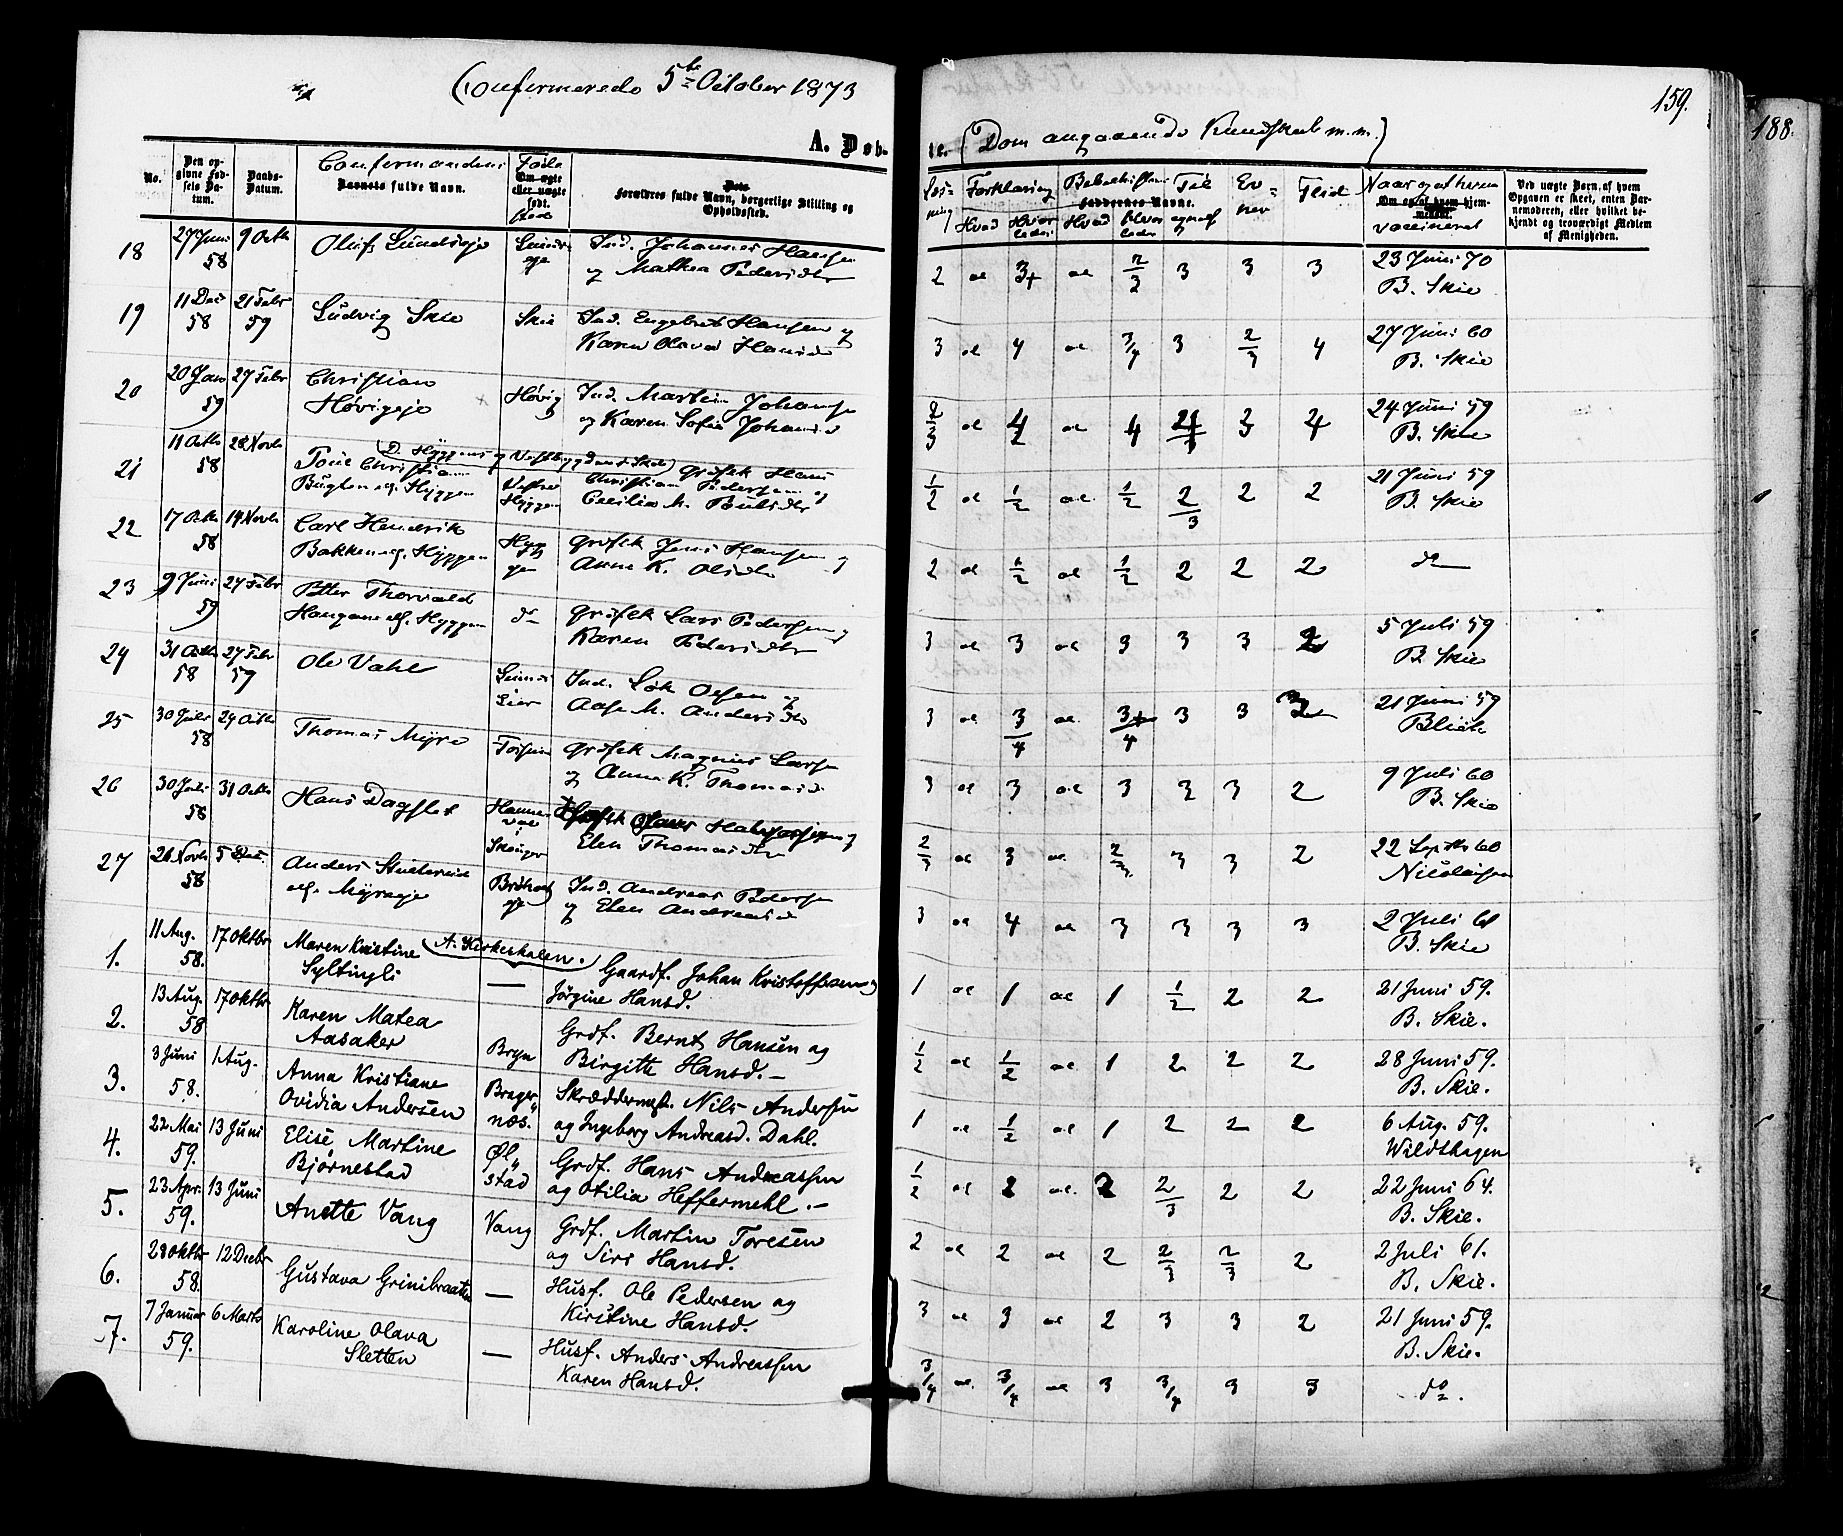 Confermerede 5te October 1873
159.
188.
A. Døb-
te. (Dom angaaende Kundskab m.m.)
No.
Den op-
givne Fød-
sels Da-
tum.
Daabs-
Datum.
Confermandens
Barnets fulde Navn.
Føde
Om ægte
eller uægte
født.
Sted
Dets
Forældres fulde Navn, borgerlige Stilling og
Opholdssted.
Læs-
ning
Forklaring
Hvad Hvor-
ledes
Faddernes Navne.
Hvad Hvor
ledes
Ev-
ner
Flid
Naar og af hvem
Om og af hvem hjem-
medøbt.
vaccineret
Ved uægte Barn, af hvem
Opgaven er skeet, enten Bar-
nemoderen, eller hvilket be-
kjendt og troværdigt Medlem
af Menigheden.
18 27 Juni 58 9 Octb Oluf Lundseje Lunds-eje Ind. Johannes Hansen
og Mathea Pedersdtr 2 3+ 3 3 3 23 Juni 70
B. Skie
19 11 Dec 58 21 Febr 59 Ludvig Skie Skie Ind. Engebret Hansen og
Karen Olava Hansdr 3 4 3/4 3 2/3 4 27 Juni 60
B. Skie
20 20 Jan 59 27 Febr Christian
Høvigeje Høvig Ind. Martin Johansen
og Karen Sofie Johansd 24 Juni 59
B. Skie
21 11 Octb 58 28 Novb Christian
Hyggen Vestre
Hyggen Grdfsk Hans
Christian Pedersen og
Cecilia M. Poulsdtr 1/2 1/2 1/2 2/3 2 2 21 Juni 59
B. Skie
22 17 Octb 58 14 Novb Carl Hendrik
Bakken af Hyggen Hyg-
gen Grdfsk Jens Hansen og
Anne K. Olsdtr 2 1/2 1/2 2 2 2 do
23 9 Juni 59 27 Febr Petter Thorvald
Haugane af Hyggen do Grdfsk Lars Pedersen og
Karen Pedersdtr 3 3 3 3 3 2 5 Juli 59
B Skie
24 31 Octb 58 27 Febr 59 Ole Vahl
Lier Ind. Olsen og
Aase M. Andersdtr 3 3/4 3+/4 3 3 21 Juni 59
25 30 Juli 58 24 Octb Thomas Myre Grdfsk Magnus Larsen
og Anne K. Thomasd 3 3 3 3 3 2 9 Juli 60
B. Skie
26 30 Juli 58 31 Octb Hans Dagslet
Elen Thomasdtr 2/3 3 2/3 3 3 2 22 Septbr 60
Nicolaisen
27 26 Novb 58 5 Dec. Anders
af Myraeje Ind. Andreas Pedersen
og Elen Andreasd 3 4 3 3 3 3 2 Juli 61
B. Skie
1. 11 Aug. 58. 17 Oktbr Maren Kristine (A. Kirkeskolen.)
Syltingli — Gaardf. Johan Kristoffersen og
Jørgine Hansd. 1 al 1 al 1 1/2 2 2 21 Juni 59.
B. Skie.
2. 13 Aug. 58 17 Oktbr Karen Matea
Aasaker Bryn Grdf. Bernt Hansen og
Birgitte Hansd. — 1/2 al 1/2 al 1 2 2 2 28 Juni 59.
B. Skie.
3. 3 Juni 58. 1 Aug. Anna Kristiane
Ovidia Andersen Brager-
næs. Skræddermest. Nils Andersen
og Ingeborg Andreasd. Dahl. 1 al 1/2 al 1 2 2 2 6 Aug. 59.
Wildthagen
4. 22 Mai 59. 13 Juni Elise Martine
Bjørnestad Øl-
stad Grdf. Hans Andreassen
og Otilia Heffermehl. — 1/2 al 2 al 2 2/3 2 2 22 Juni 64.
B. Skie.
5. 23 Apr. 59. 13 Juni Anette Vang Vang Grdf. Martin Toresen
og Siri Hansd. 2 al 2 al 2 2/3 2/3 2 2 Juli 61.
B. Skie.
6. 28 Oktbr 58. 12 Decbr Gustava Grinibraaten — Husf. Ole Pedersen og
Kirstine Hansd. 3 al 3 al 2 3 3 2 21 Juni 59.
B. Skie.
7. 7 Januar 59. 6 Marts Karoline Olava
Sletten — Husf. Anders Andreassen
Karen Hansd. 3/4 al 3/4 al 3 3/4 3 3 do.